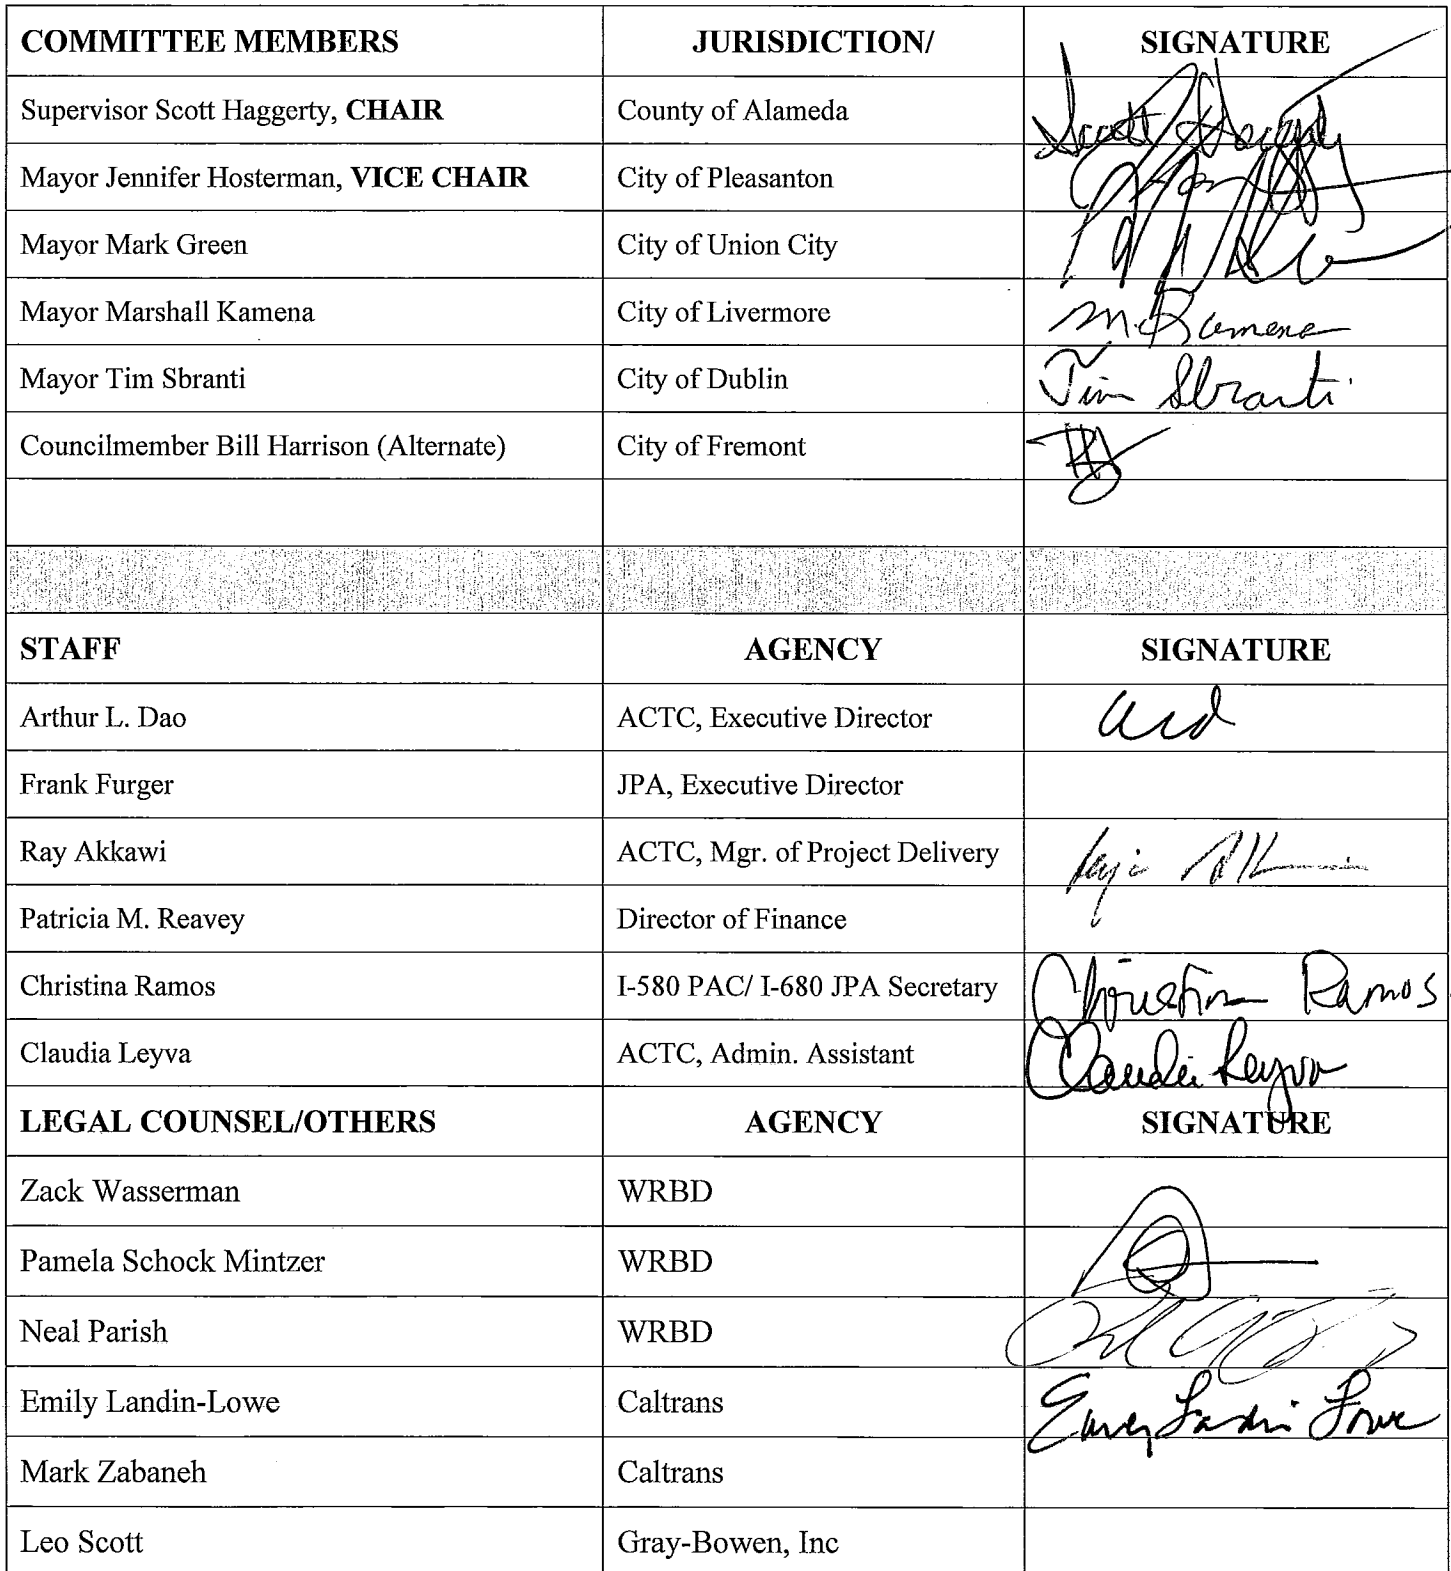 COMMITTEE MEMBERS JURISDICTION/ SIGNATURE
Supervisor Scott Haggerty, CHAIR County of Alameda Scott Haggerty
Mayor Jennifer Hosterman, VICE CHAIR City of Pleasanton
Mayor Mark Green City of Union City
Mayor Marshall Kamena City of Livermore M. Kamena
Mayor Tim Sbranti City of Dublin Tim Sbranti
Councilmember Bill Harrison (Alternate) City of Fremont
STAFF AGENCY SIGNATURE
Arthur L. Dao ACTC, Executive Director
Frank Furger JPA, Executive Director
Ray Akkawi ACTC, Mgr. of Project Delivery
Patricia M. Reavey Director of Finance
Christina Ramos I-580 PAC/ I-680 JPA Secretary Christina Ramos
Claudia Leyva ACTC, Admin. Assistant Claudia Leyva
LEGAL COUNSEL/OTHERS AGENCY SIGNATURE
Zack Wasserman WRBD
Pamela Schock Mintzer WRBD
Neal Parish WRBD
Emily Landin-Lowe Caltrans Emily Landin Lowe
Mark Zabaneh Caltrans
Leo Scott Gray-Bowen, Inc